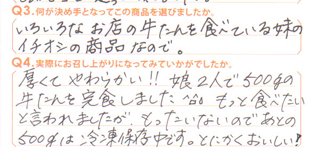 Q3.何が決め手となってこの商品を選びましたか。
いろいろなお店の牛たんを食べている妹の
イチオシの商品なので。
Q4.実際にお召し上がりになってみていかがでしたか。
厚くてやわらかい!! 娘2人で500gの
牛たんを完食しました^^。もっと食べたい
と言われましたが、もったいないのであとの
500gは冷凍保存中です。とにかくおいしい!